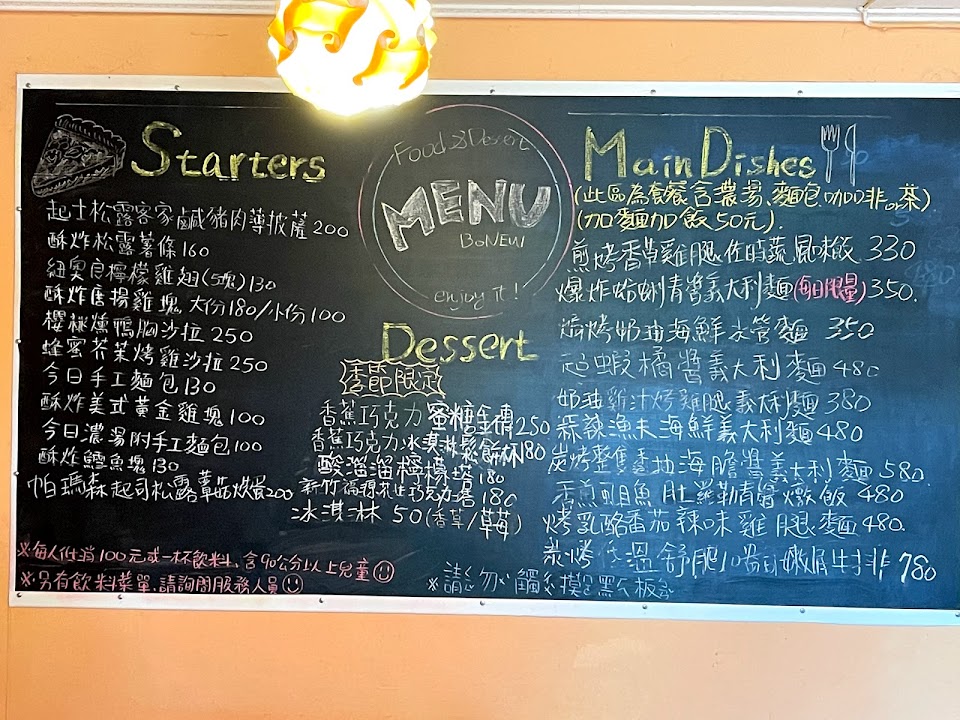 Starters
起士松露客家鹹豬肉薄披薩200
酥炸松露薯條160
紐奧良檸檬雞翅(5塊)130
酥炸唐揚雞塊 大份180/小份100
櫻桃燻鴨胸沙拉250
蜂蜜芥茉烤雞沙拉250
今日手工麵包130
酥炸美式黃金雞塊100
今日濃湯附手工麵包100
酥炸鱈魚塊130
帕瑪森起司松露蘑菇炊蛋200
※每人低消100元或一杯飲料,含90公分以上兒童
※另有飲料菜單,請詢問服務人員
Food & Dessert
MENU
BoNEW
enjoy it!
Dessert
季節限定
香蕉巧克力蜜糖吐磚250
香蕉巧克力冰淇淋鬆餅杯180
酸溜溜檸檬塔180
新竹福源花生巧克力塔180
冰淇淋 50(香草/草莓)
Main Dishes
(此區為套餐含濃湯、麵包、咖啡。茶)
(加麵加飯50元)
煎烤香草雞腿佐時蔬 330
爆炸蛤蜊青醬義大利麵(每日限量)350.
焗烤奶油海鮮水管麵 350
起司蝦橘醬義大利麵480
奶油雞汁烤雞腿義大利麵380
蒜辣漁夫海鮮義大利麵480
炭烤整隻 海膽醬義大利麵580.
香煎 魚肚羅勒青醬燉飯480
烤乳酪番茄辣味雞腿麵480.
炭烤低溫舒肥10盎司嫩肩牛排 780
※請勿觸摸黑板